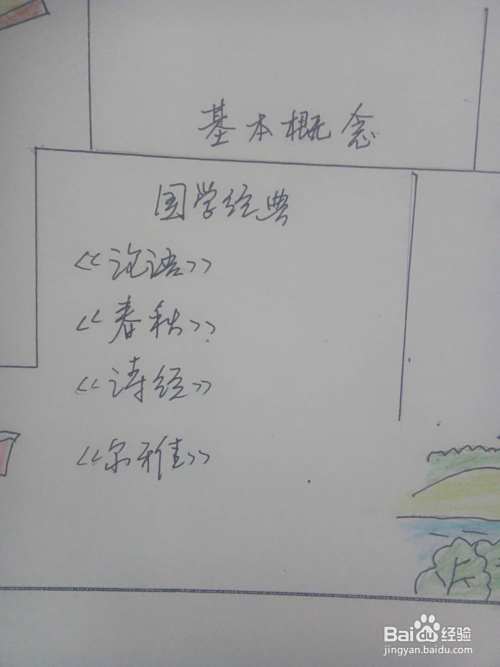 基本概念
国学经典
《论语》
《春秋》
《诗经》
《尔雅》
Baidu 经验
jingyan.baidu.com